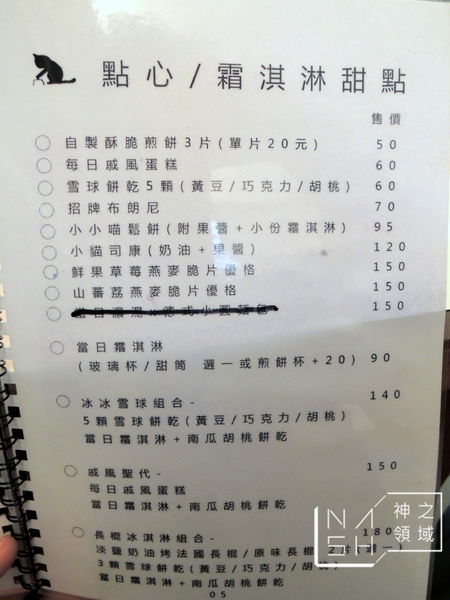 點心/霜淇淋甜點
售價
自製酥脆煎餅3片(單片20元) 50
每日戚風蛋糕 60
雪球餅乾5顆(黃豆/巧克力/胡桃) 60
招牌布朗尼 70
小小喵鬆餅(附果醬+小份霜淇淋) 95
小貓司康(奶油+果醬) 120
鮮果草莓燕麥脆片優格 150
山蕃荔燕麥脆片優格 150
當日濃湯 德式小圓麵包 150
當日霜淇淋
(玻璃杯/甜筒 選一或煎餅杯+20) 90
冰冰雪球組合- 140
5顆雪球餅乾(黃豆/巧克力/胡桃)
當日霜淇淋+南瓜胡桃餅乾
戚風聖代- 150
每日戚風蛋糕
當日霜淇淋+南瓜胡桃餅乾
長棍冰淇淋組合- 180
淡鹽奶油烤法國長棍/原味長棍 2片(選一)
3顆雪球餅乾(黃豆/巧克力/胡桃)
當日霜淇淋+南瓜胡桃餅乾
05
神之
領域